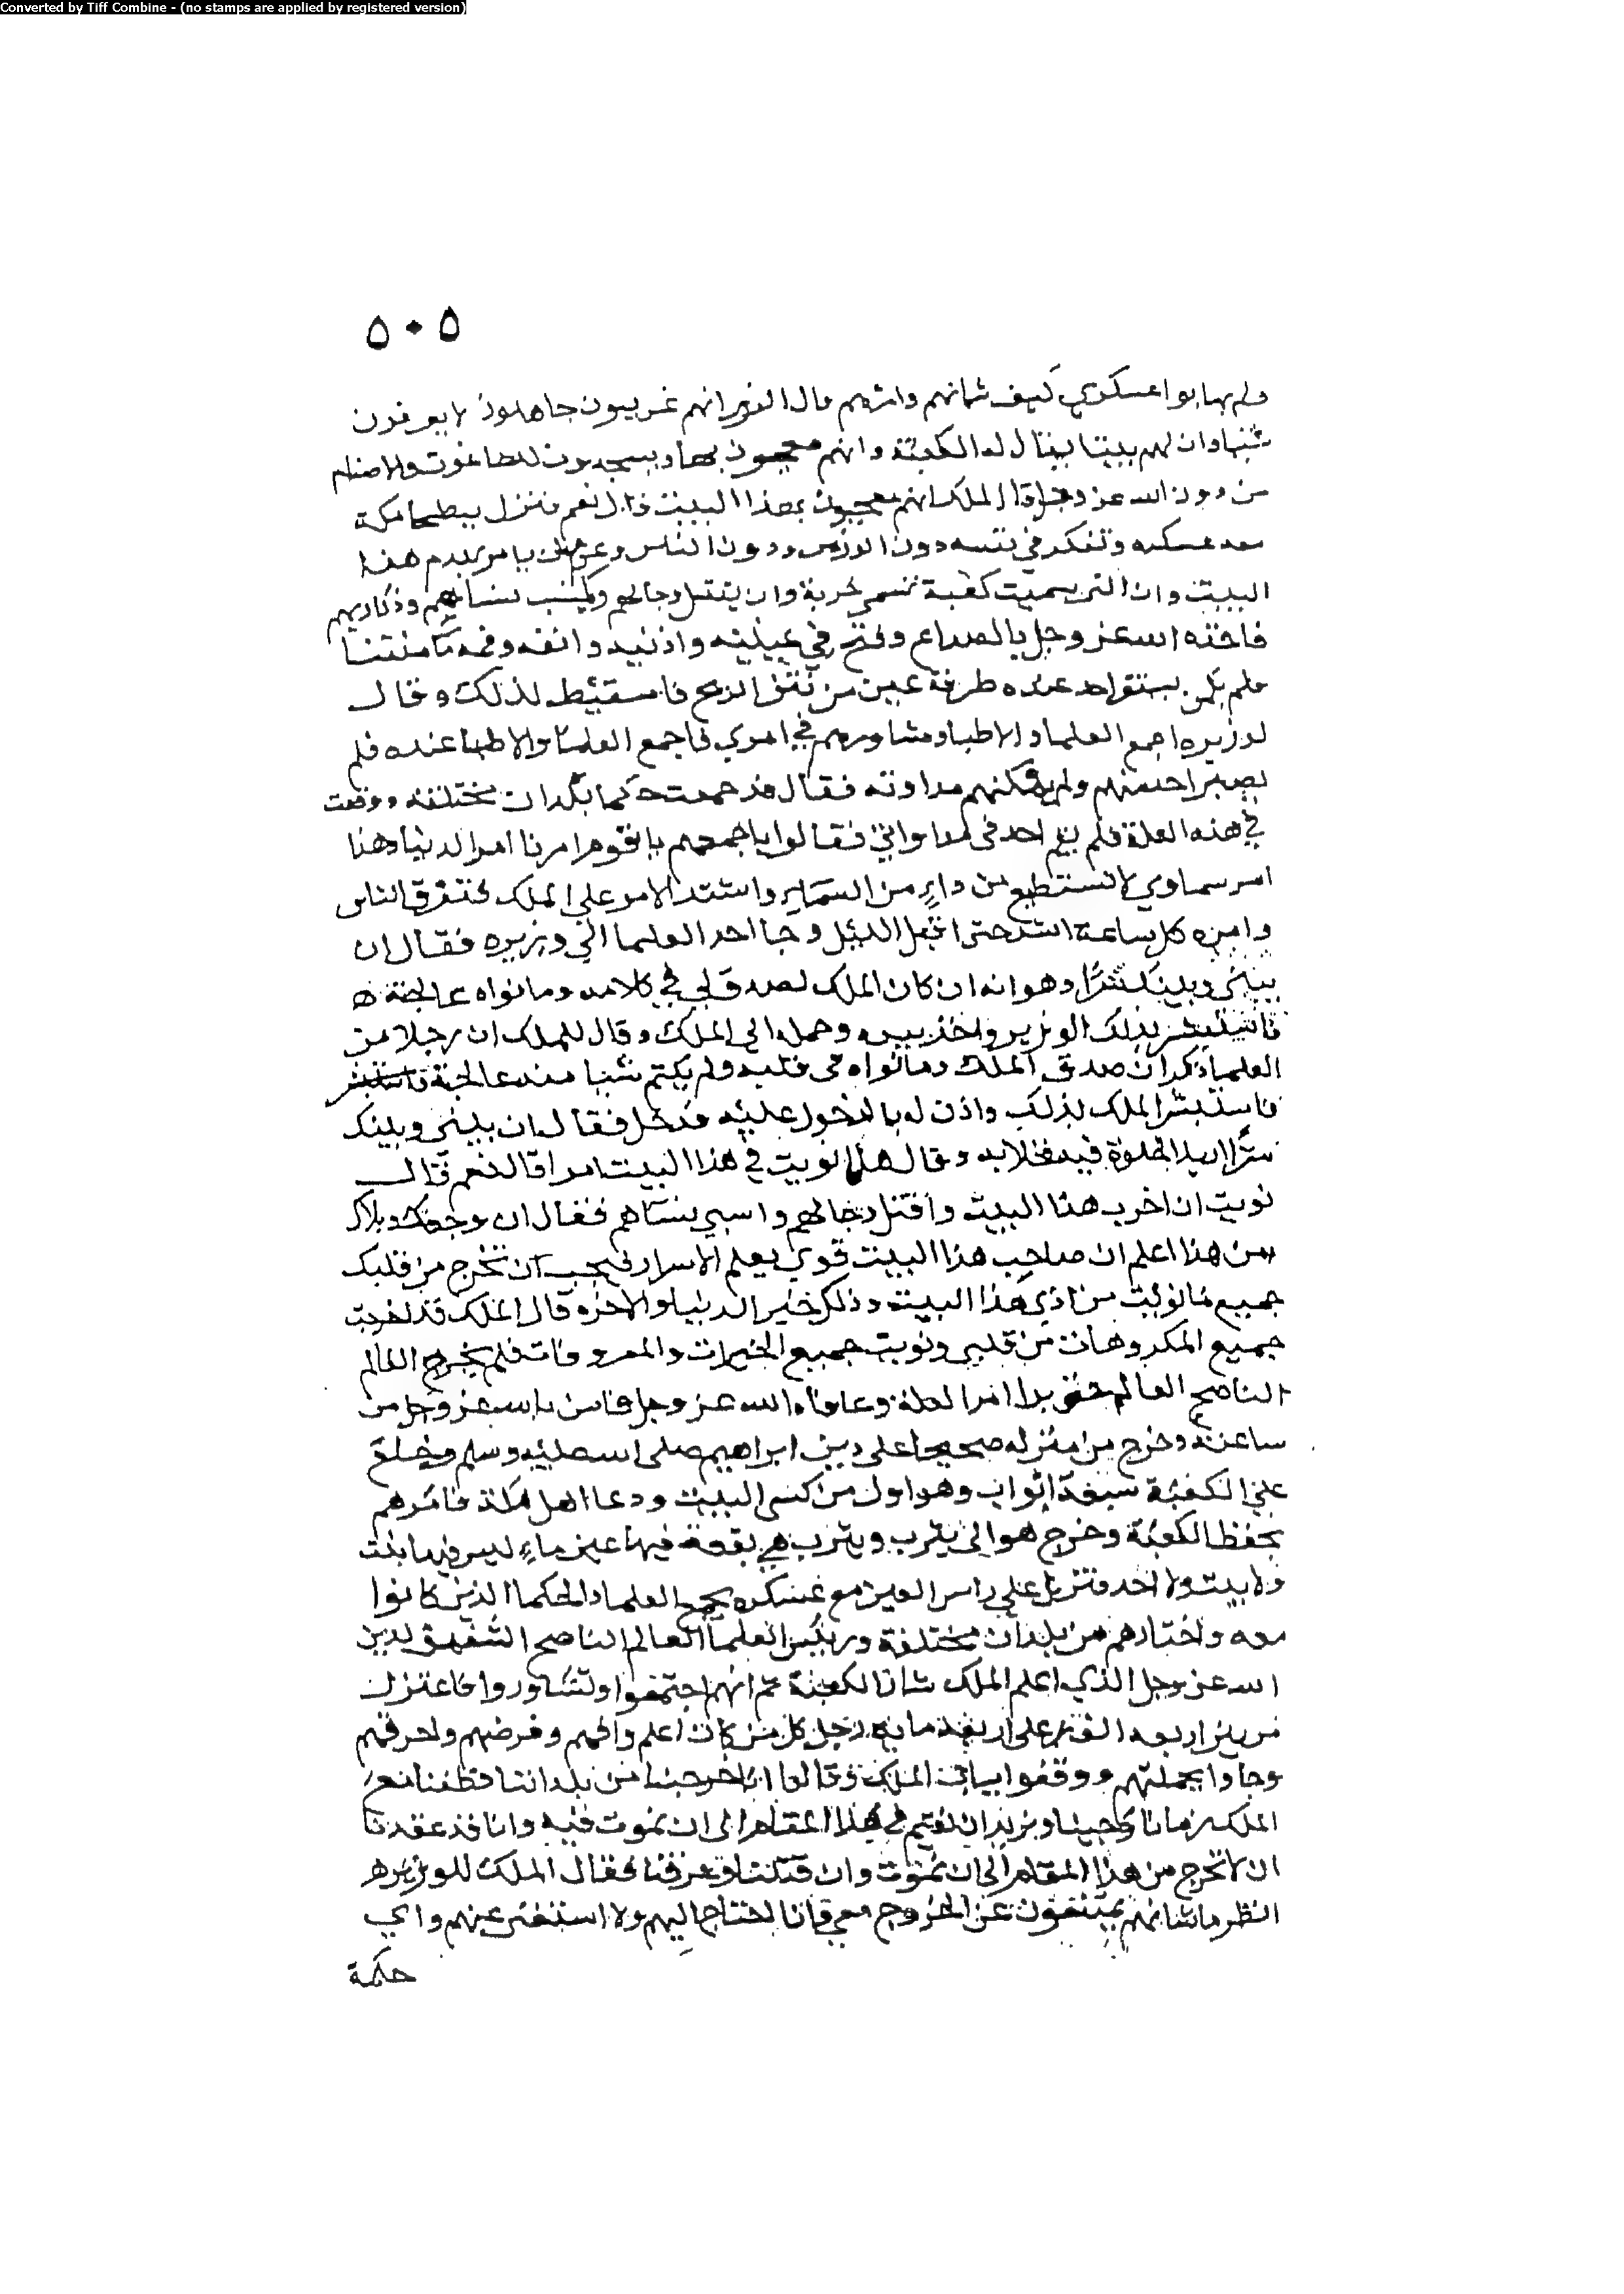 Converted by Tiff Combine - (no stamps are applied by registered version)
٥٠٥
ولم يهابوا عسكري كيف شانهم وامرهم قال الوزير انهم غريبون جاهلون لا يعرفون
شيا وان لهم بيتا يقال له الكعبة وانهم معجبون بها ويسجدون للطاغوت والاصنام
من دون الله عز وجل قال الملك انهم معجبون بهذا البيت قال نعم فنزل ببطحا مكة
معه عسكره وتفكر في نفسه دون الوزير ودون الناس وعزم ان يامر بهدم هذا
البيت وان التي سميت كعبة تسمى خربة وان يقتل رجالهم ويسبي نساهم وذراريهم
فاخذه الله عز وجل بالصداع وفتح في عينيه واذنيه وانفه وفمه ما منتنا
فلم يكن يستقر احد عنده طرفة عين من نتن الريح فاستيقظ لذلك وقال
لوزيره اجمع العلما والاطبا وشاورهم في امري فاجمع العلما والاطبا عنده فلم
يصبر احد منهم ولم يمكنهم مداوته فقال قد جمعت حكما بلدان مختلفة ووقعت
في هذه العلة فلم يقم احد في مداواتي فقالوا باجمعهم يا قوم امرنا امر الدنيا وهذا
امر سماوي لا نستطيع من داءٍ من السماء واشتد الامر على الملك فتفرق الناس
وامره كل ساعة اشد حتى اقبل الليل وجا احد العلما الى وزيره فقال ان
بيني وبينك سرًّا وهو انه ان كان الملك يصدقني في كلامه وما نواه عالجته
فاستبشر بذلك الوزير واخذ بيده وحمله الى الملك وقال للملك ان رجلا من
العلما ذكر ان صدق الملك وما نواه في قلبه ولم يكتم شيا منه عالجته
فاستبشر الملك بذلك واذن له بالدخول عليه فدخل فقال ان بيني وبينك
سرًّا اريد الخلوة فيه فخلا به وقال هل نويت في هذا البيت امرا قال نعم قال
نويت ان اخرب هذا البيت واقتل رجالهم واسبي نساهم فقال ان وجعك وبلاك
من هذا اعلم ان صاحب هذا البيت قوي يعلم الاسرار فيجب ان تخرج من قلبك
جميع ما نويت من اذي هذا البيت وذلك خير الدنيا والاخرة قال الملك قد اخرجت
جميع المكروهات من قلبي ونويت جميع الخيرات والمعروفات فلم يخرج العالم
الناصح العالم حتى برا من العلة وعافاه الله عز وجل فامن بالله عز وجل من
ساعته وخرج من منزله صحيحا على دين ابراهيم صلى الله عليه وسلم وخلع
على الكعبة سبعة اثواب وهو اول من كسى البيت ودعا اهل مكة فامرهم
بحفظ الكعبة وخرج هو الى يثرب ويثرب هي بقعة فيها عين ماءٍ ليس فيها نبت
ولا بيت ولا احد فنزل على راس العين مع عسكره يجمع العلما والحكما الذين كانوا
معه واختارهم من بلدان مختلفة ورئيس العلما العالم الناصح الشفيق لدين
الله عز وجل الذي اعلم الملك شان الكعبة ثم انهم اجتمعوا وتشاوروا فاعتزل
من بين اربعة الف على اربعة ماية رجل كل من كان اعلم والهم وفرضهم واحرفهم
وجاوا بجملتهم ووقفوا بباب الملك وقالوا انا خرجنا من بلداننا وطفنا مع
الملك زمانا وجينا ونريد ان نقيم في هذا المقام الى ان نموت فيه وانا قد عقدنا
ان لا نخرج من هذا المقام الى ان نموت وان قتلنا وحرقنا فقال الملك للوزير
انظر ما شانهم يمتنعون عن الخروج معي فانا احتاج اليهم ولا استغنى عنهم واي
حكمة